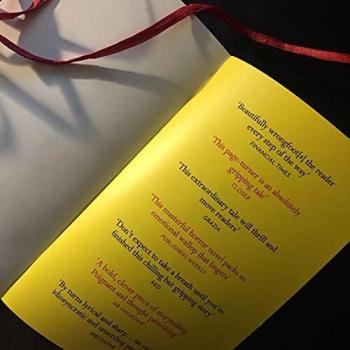 'Beautifully wrongfoot[s] the reader
every step of the way'
FINANCIAL TIMES
'This page-turner is an absolutely
gripping tale'
CLOSER
'This extraordinary tale will thrill and
move readers'
GRAZIA
'This masterful horror novel packs an
emotional wallop that lingers'
PUBLISHERS WEEKLY
'Don't expect to take a breath until you've
finished this chilling but gripping story'
RED
'A bold, clever piece of storytelling.
Poignant and thought provoking'
'By turns lyrical and sharp... an
idiosyncratic and unsettling
SPECTATOR